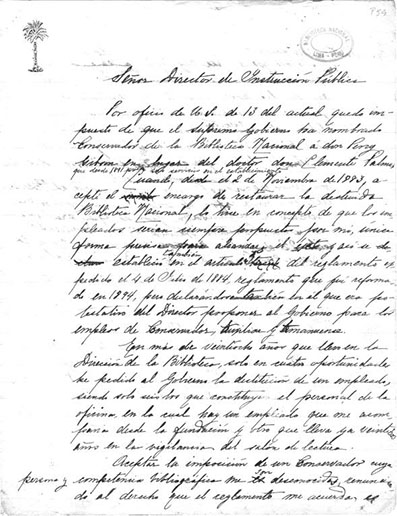 BIBLIOTECA NACIONAL
LIMA - PERU
Señor Director de Instrucción Pública
Por oficio de U.S. de 13 del actual quedo im-
puesto de que el Supremo Gobierno ha nombrado
Conservador de la Biblioteca Nacional á don
en lugar del doctor don Clemente Palma,
que desde servicio en el establecimiento
Cuando, desde el 2 de Noviembre de 1883, a-
cepté el encargo de restaurar la destruida
Biblioteca Nacional, lo hice en concepto de que los em-
pleados serían siempre propuestos por mí, única
forma para el éxito, y así se
establecía en el artículo del reglamento ex-
pedido el 4 de Julio de 1884, reglamento que fué reforma-
do en 1894, pero declarándose también en él que era po-
testativo del Director proponer al Gobierno para los
empleos de Conservador, Auxiliar y Amanuense.
En más de veintiocho años que llevo en la
Dirección de la Biblioteca, solo en cuatro oportunidades
he pedido al Gobierno la destitución de un empleado,
siendo solo seis los que constituyen el personal de la
oficina, en la cual hay un empleado que me acom-
paña desde la fundación y otro que lleva ya veinte
años en la vigilancia del salón de lectura.
Aceptar la imposición de un Conservador cuya
persona y competencia bibliográfica me son desconocidas, renuncian-
do al derecho que el reglamento me acuerda es